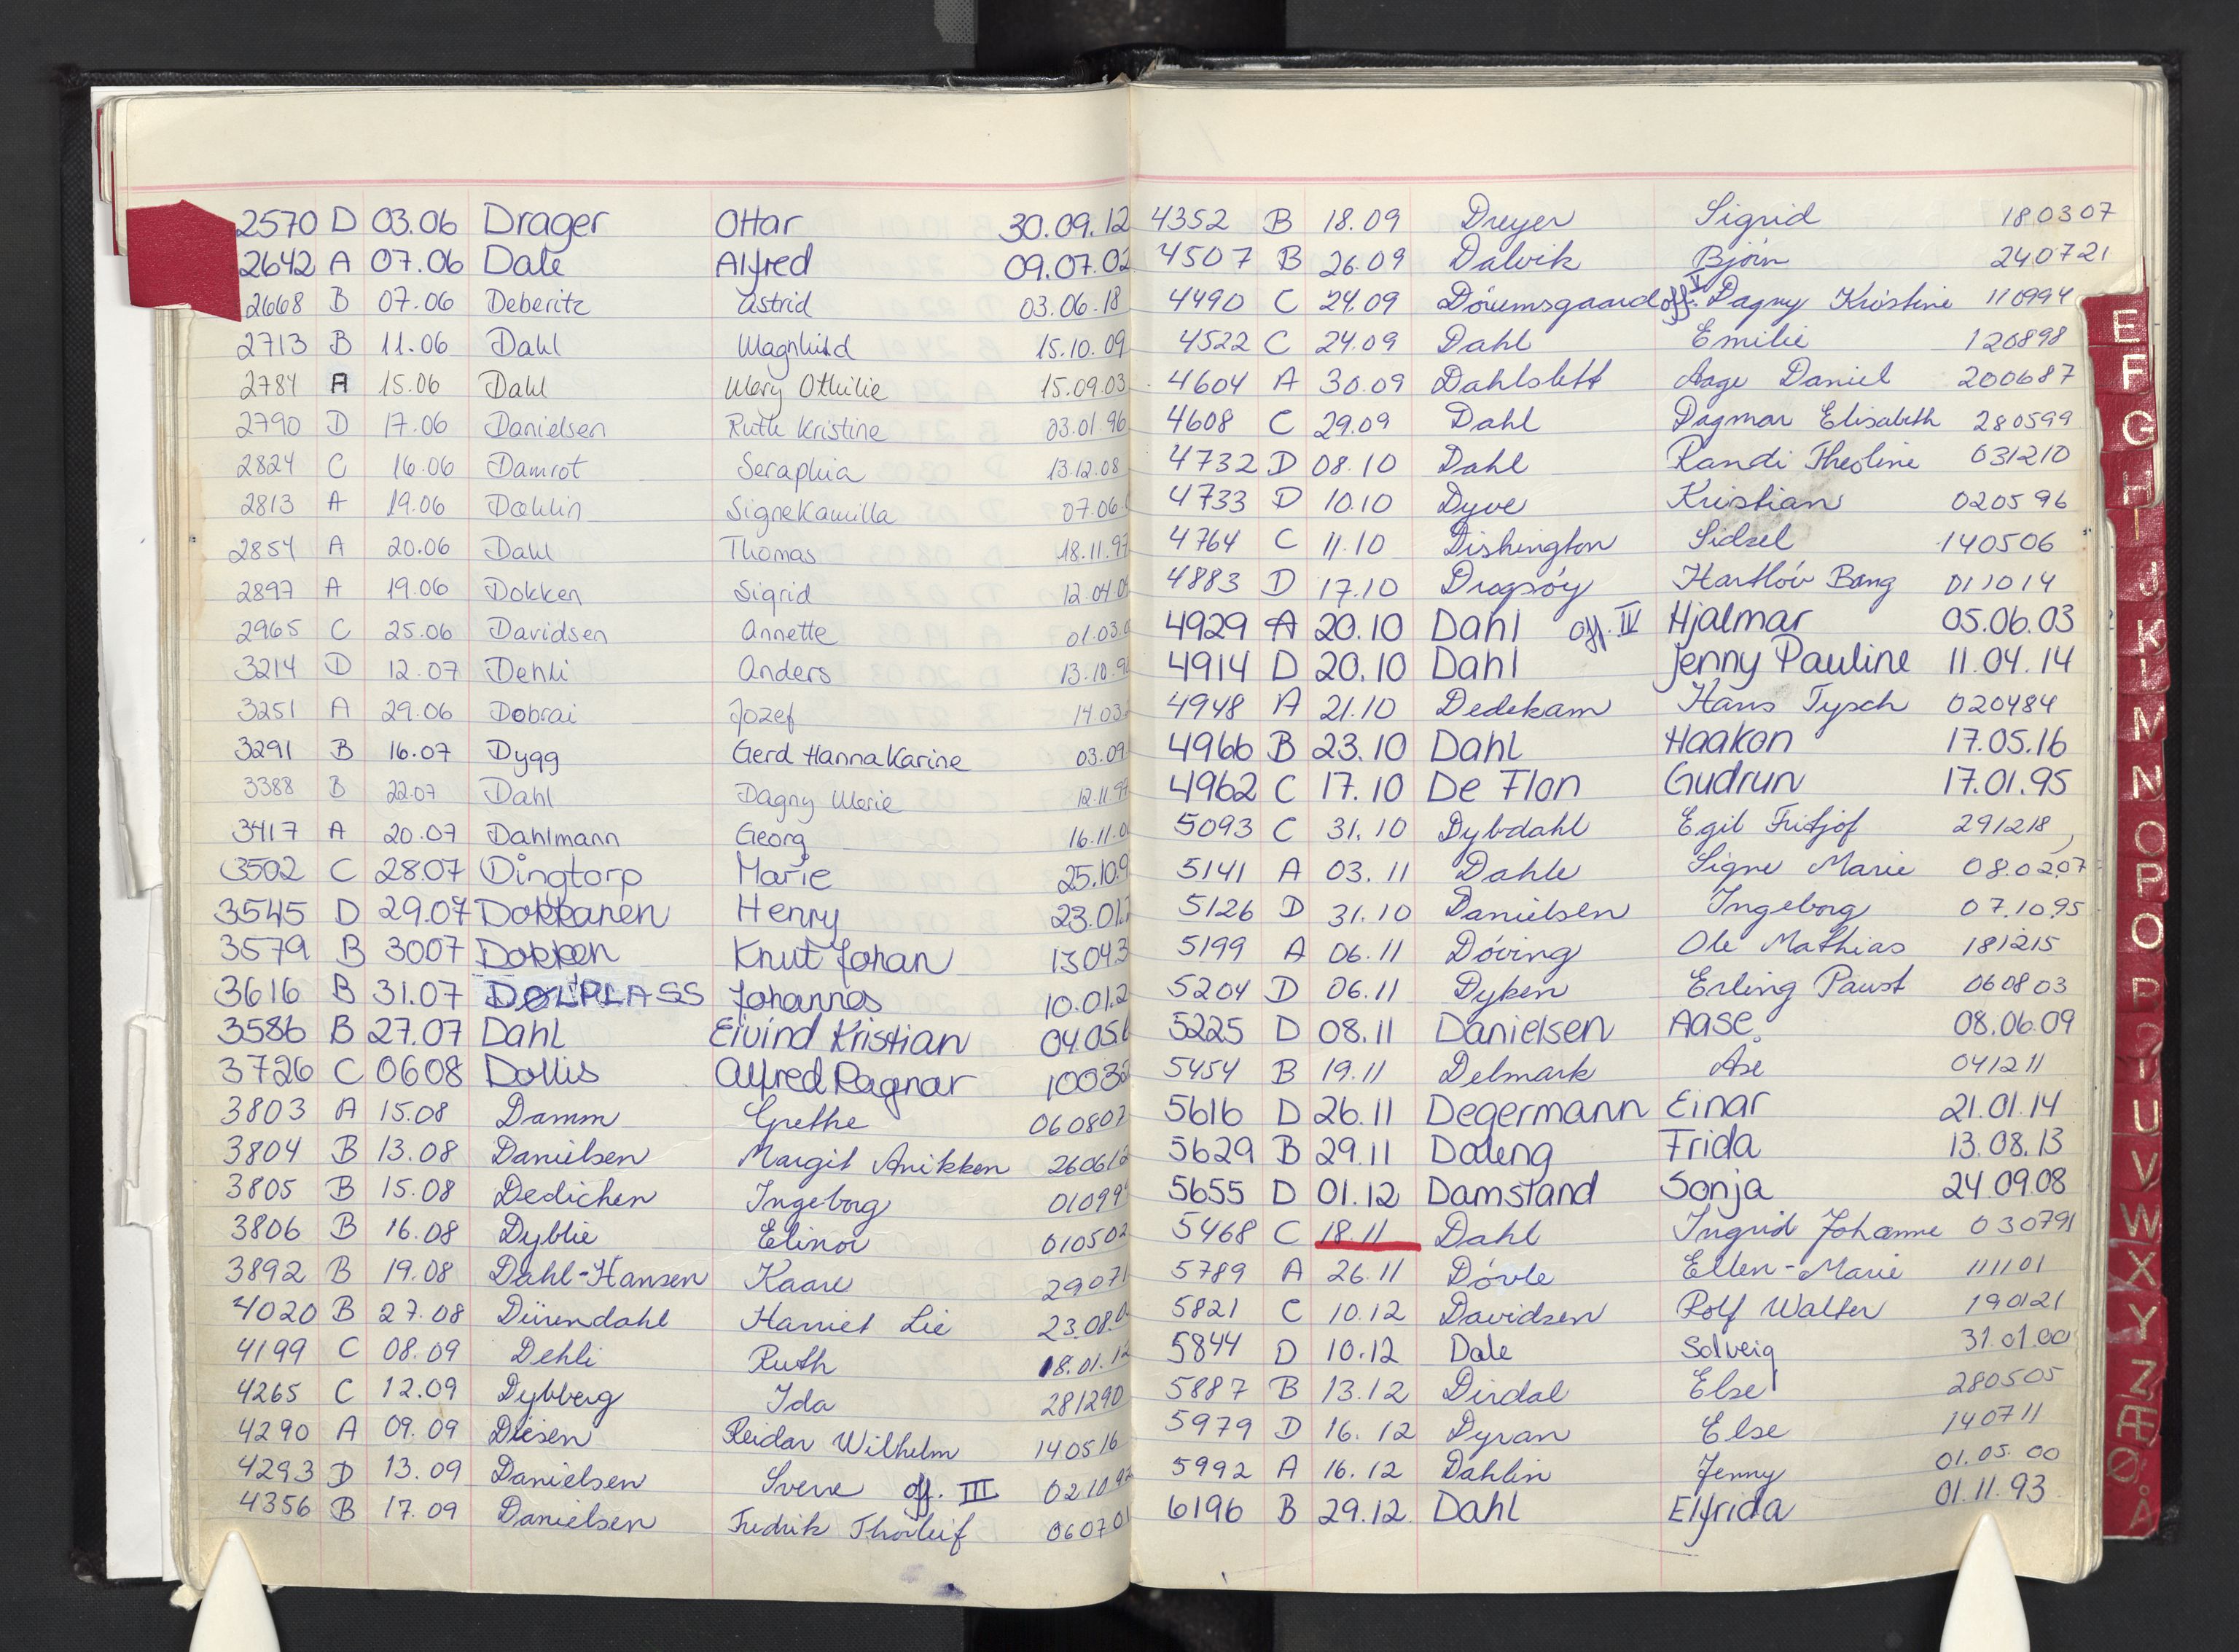 2570 D 03.06 Drager Ottar 30.09.12
2642 A 07.06 Dale Alfred 09.07.02
2668 B 07.06 Deberitz Astrid 03.06.18
2713 B 11.06 Dahl Magnhild 15.10.09
2784 A 15.06 Dahl Mery Othilie 15.09.03
2790 D 17.06 Danielsen Ruth Kristine 03.01.96
2824 C 16.06 Damrot Seraphia 13.12.08
2813 A 19.06 Dæhlin Signe Kamilla 07.06
2854 A 20.06 Dahl Thomas 18.11.97
2897 A 19.06 Dokken Sigrid 12.04.0
2965 C 25.06 Davidsen Annette 01.03.
3214 D 12.07 Dehli Anders 13.10.9
3251 A 29.06 Dobrai Jozef 14.03
3291 B 16.07 Dygg Gerd Hanna Karine 03.09
3388 B 22.07 Dahl Dagny Marie 12.11.9
3417 A 20.07 Dahlmann Georg 16.11.0
3502 C 28.07 Dingtorp Marie 25.10.9
3545 D 29.07 Dokkanen Henry 23.01.
3579 B 3007 Dokken Knut Johan 13.04.3
3616 B 31.07 DØLPLASS Johannes 10.01.2
3586 B 27.07 Dahl Eivind Kristian 04.05.
3726 C 0608 Dollis Alfred Ragnar 10032
3803 A 15.08 Damm Grethe 060807
3804 B 13.08 Danielsen Margit Anikken 260612
3805 B 15.08 Dedichen Ingeborg 01099
3806 B 16.08 Dyblie Elinor 010502
3892 B 19.08 Dahl-Hansen Kaare 29071
4020 B 27.08 Dürendahl Harriet Lie 23.08.0
4199 C 08.09 Dehli Ruth 18.01.12
4265 C 12.09 Dybberg Ida 281290
4290 A 09.09 Diesen Reidar Wilhelm 140516
4293 D 13.09 Danielsen Sverre off. III 02.10.9
4356 B 17.09 Danielsen Fredrik Thorleif 060701
4352 B 18.09 Dreyer Sigrid 180307
4507 B 26.09 Dalvik Bjørn 240721
4490 C 24.09 Dørumsgaard off. V Dagny Kristine 110994
4522 C 24.09 Dahl Emilie 120898
4604 A 30.09 Dahlslett Aage Daniel 200687
4608 C 29.09 Dahl Dagmar Elisabeth 280599
4732 D 08.10 Dahl Randi Theoline 031210
4733 D 10.10 Dyve Kristian 020596
4764 C 11.10 Dishington Sidsel 140506
4883 D 17.10 Dragsøy Hartløv Bang 011014
4929 A 20.10 Dahl off. IV Hjalmar 05.06.03
4914 D 20.10 Dahl Jenny Pauline 11.04.14
4948 A 21.10 Dedekam Hans Tysch 020484
4966 B 23.10 Dahl Haakon 17.05.16
4962 C 17.10 De Flon Gudrun 17.01.95
5093 C 31.10 Dybdahl Egil Fritjof 291218
5141 A 03.11 Dahle Signe Marie 08.02.07
5126 D 31.10 Danielsen Ingeborg 07.10.95
5199 A 06.11 Døving Ole Mathias 181215
5204 D 06.11 Dyken Erling Paust 060803
5225 D 08.11 Danielsen Aase 08.06.09
5454 B 19.11 Delmark Åse 041211
5616 D 26.11 Degermann Einar 21.01.14
5629 B 29.11 Daleng Frida 13.08.13
5655 D 01.12 Damstand Sonja 24.09.08
5468 C 18.11 Dahl Ingrid Johanne 030791
5789 A 26.11 Døvle Ellen-Marie 111101
5821 C 10.12 Davidsen Rolf Walter 190121
5844 D 10.12 Dale Solveig 31.01.00
5887 B 13.12 Dirdal Else 280505
5979 D 16.12 Dyran Else 140711
5992 A 16.12 Dahlin Jenny 01.05.00
6196 B 29.12. Dahl Elfrida 01.11.93
E
F
G
H
I
J
K
L
M
N
O
P
O
P
U
V
W
X
Y
Z
Æ
Ø
Å